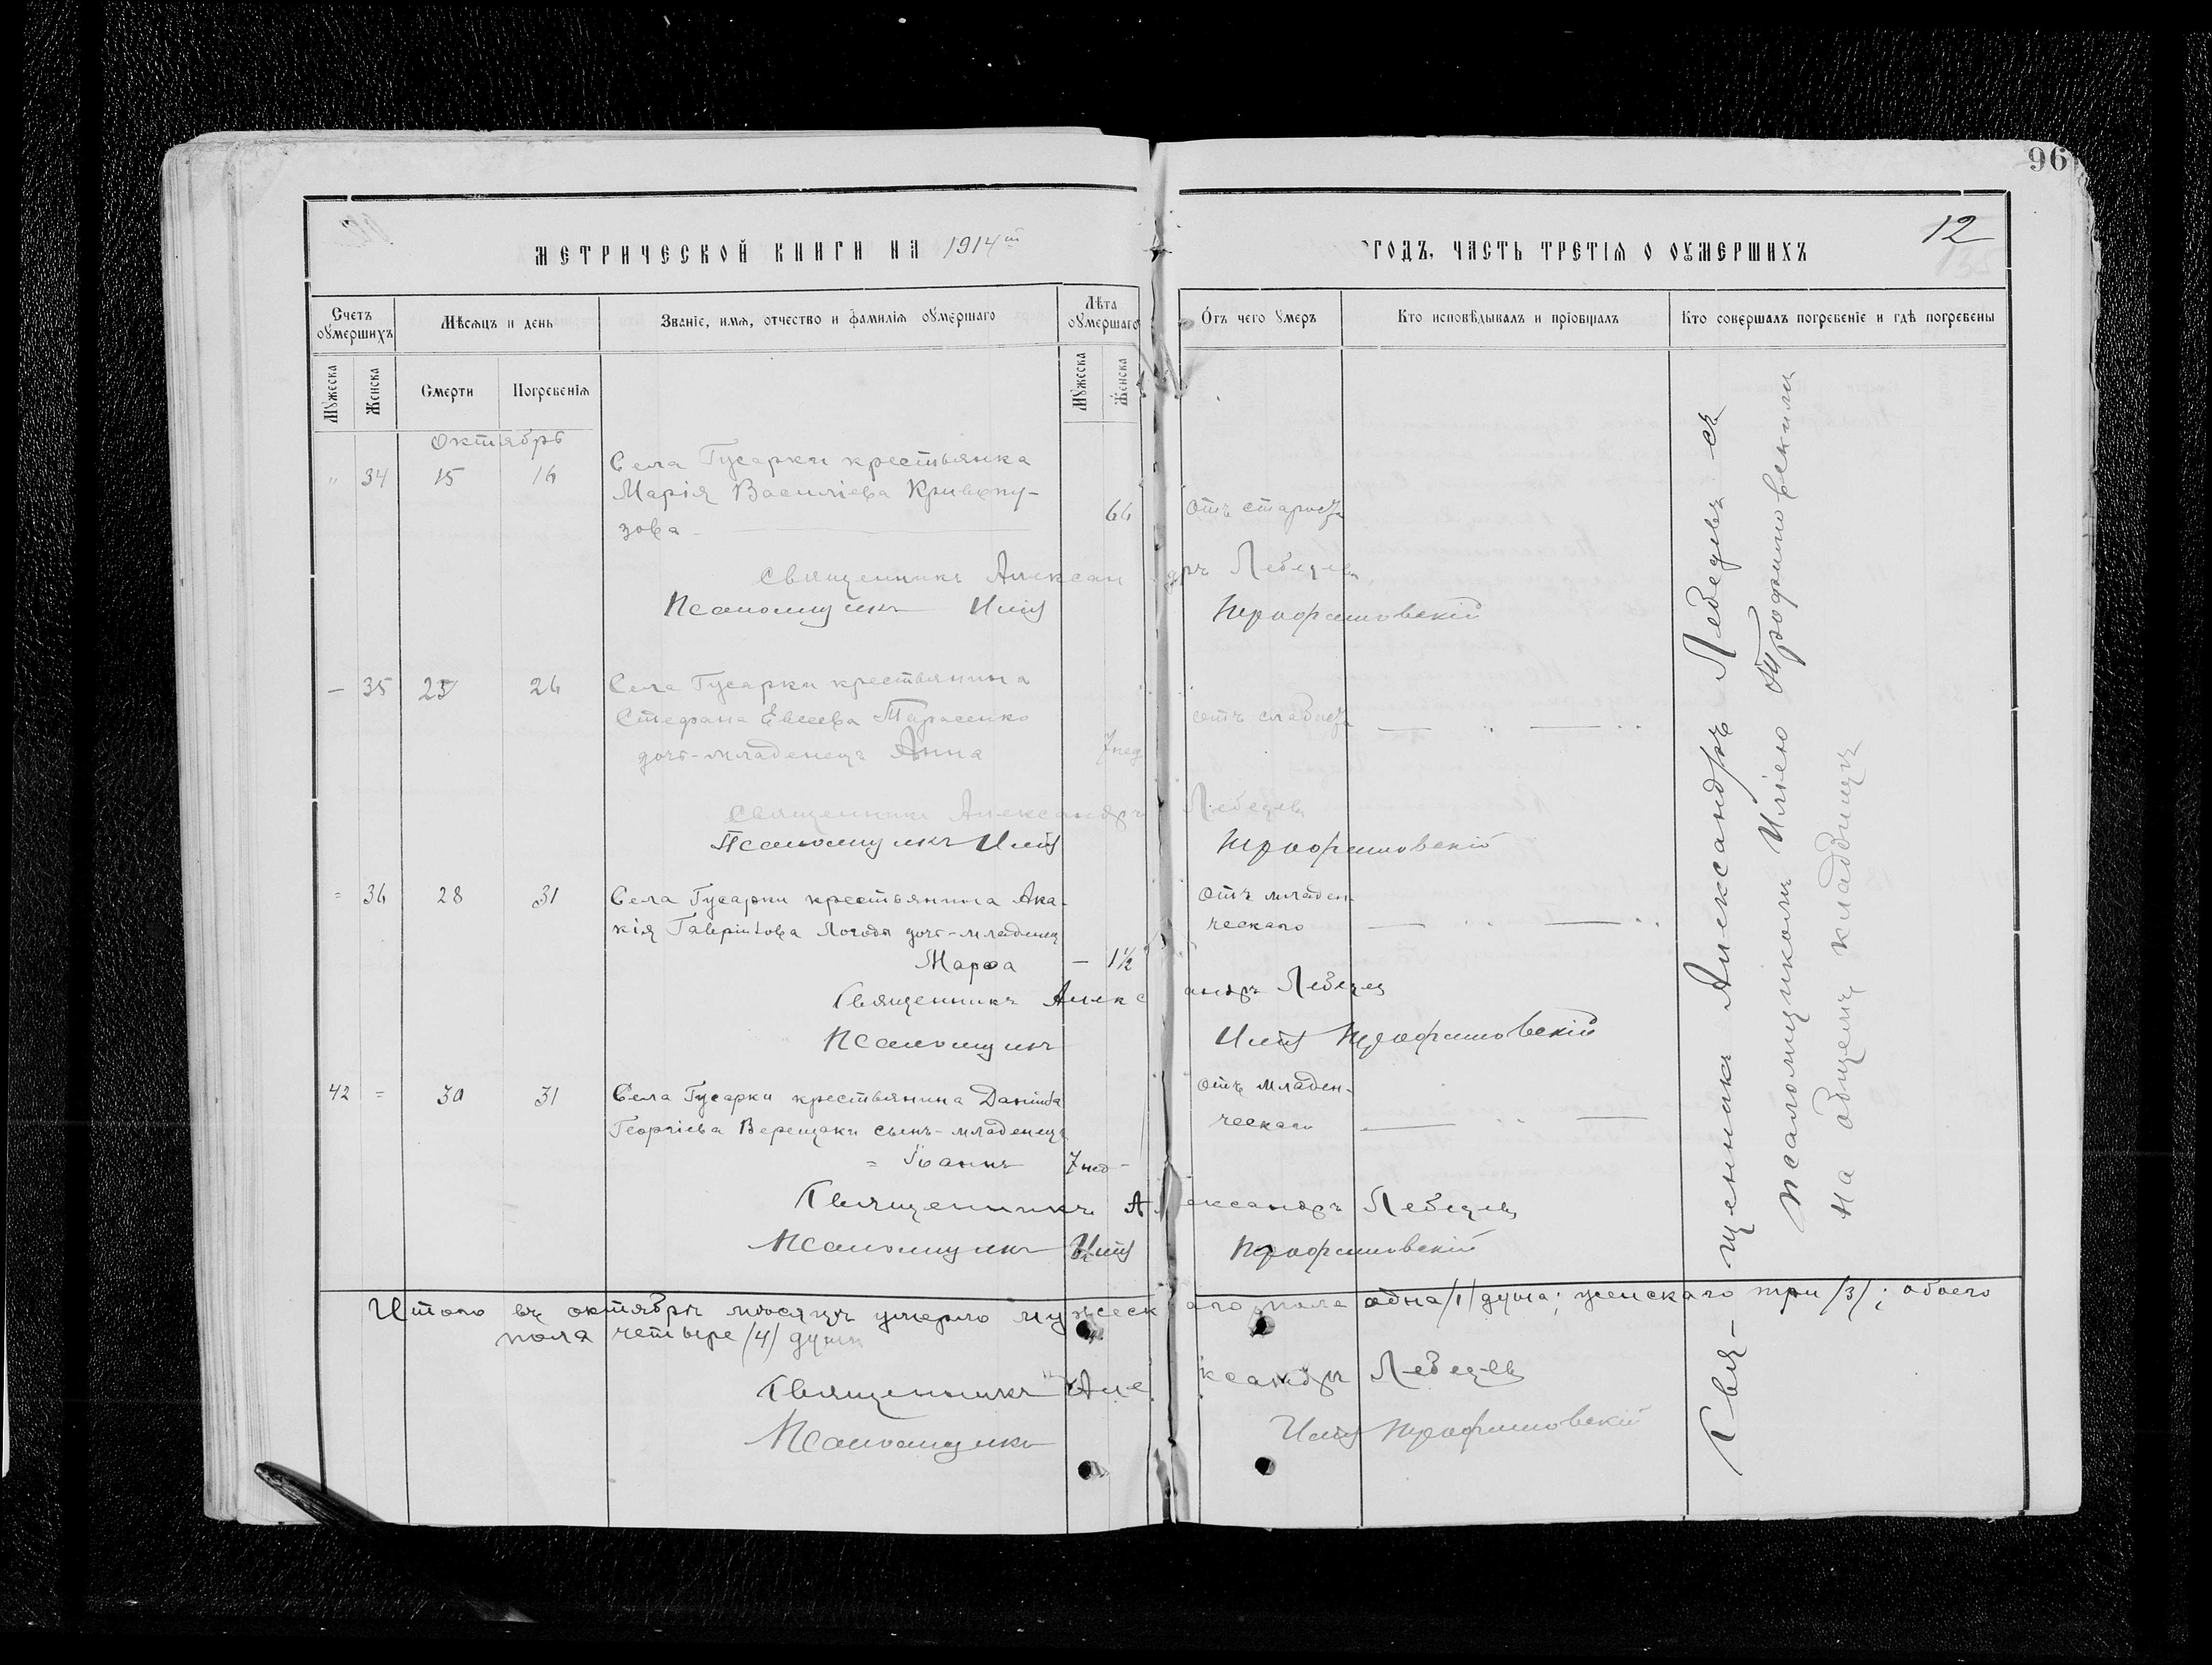 96
12
МЕТРИЧЕСКОЙ КНИГИ НА 1914й
ГОДЪ, ЧАСТЬ ТРЕТІЯ О ОУМЕРШИХЪ
Счетъ оумершихъ
Мѣсяцъ и день
Званіе, имя, отчество и фамилія оумершаго
Лѣта оумершаго
Отъ чего умеръ
Кто исповѣдывалъ и пріобщалъ
Кто совершалъ погребеніе и гдѣ погребены
Мужеска
Женска
Смерти
Погребенія
Мужеска
Женска
Октябрь
" 34 15 16 Села Гусарки крестьянка
Марія Василіева Кривопу-
зова 66 отъ старости
Священникъ Александръ Лебедевъ
Псаломщикъ Илія Трофимовскій
— 35 25 26 Села Гусарки крестьянина
Стефана Евсеева Тарасенко
дочь-младенецъ Анна 7 нед отъ слабости
Священникъ Александръ Лебедевъ
Псаломщикъ Илія Трофимовскій
= 36 28 31 Села Гусарки крестьянина Ака-
кія Гавріилова дочь-младенецъ
Марѳа — 1½
отъ младен-
ческаго
Священникъ Александръ Лебедевъ
Псаломщикъ Илія Трофимовскій
42 = 30 31 Села Гусарки крестьянина Даніила
Георгіева Верещаки сынъ-младенецъ
= Іоаннъ 7 нед -
отъ младен-
ческаго
Священникъ Александръ Лебедевъ
Псаломщикъ Илія Трофимовскій
Священникъ Александръ Лебедевъ съ
псаломщикомъ Иліею Трофимовскимъ
на общемъ кладбищѣ
Итого въ октябрѣ мѣсяцѣ умерло мужескаго пола одна /1/ душа; женскаго три /3/; обоего
пола четыре /4/ души
Священникъ Александръ Лебедевъ
Псаломщикъ Илія Трофимовскій